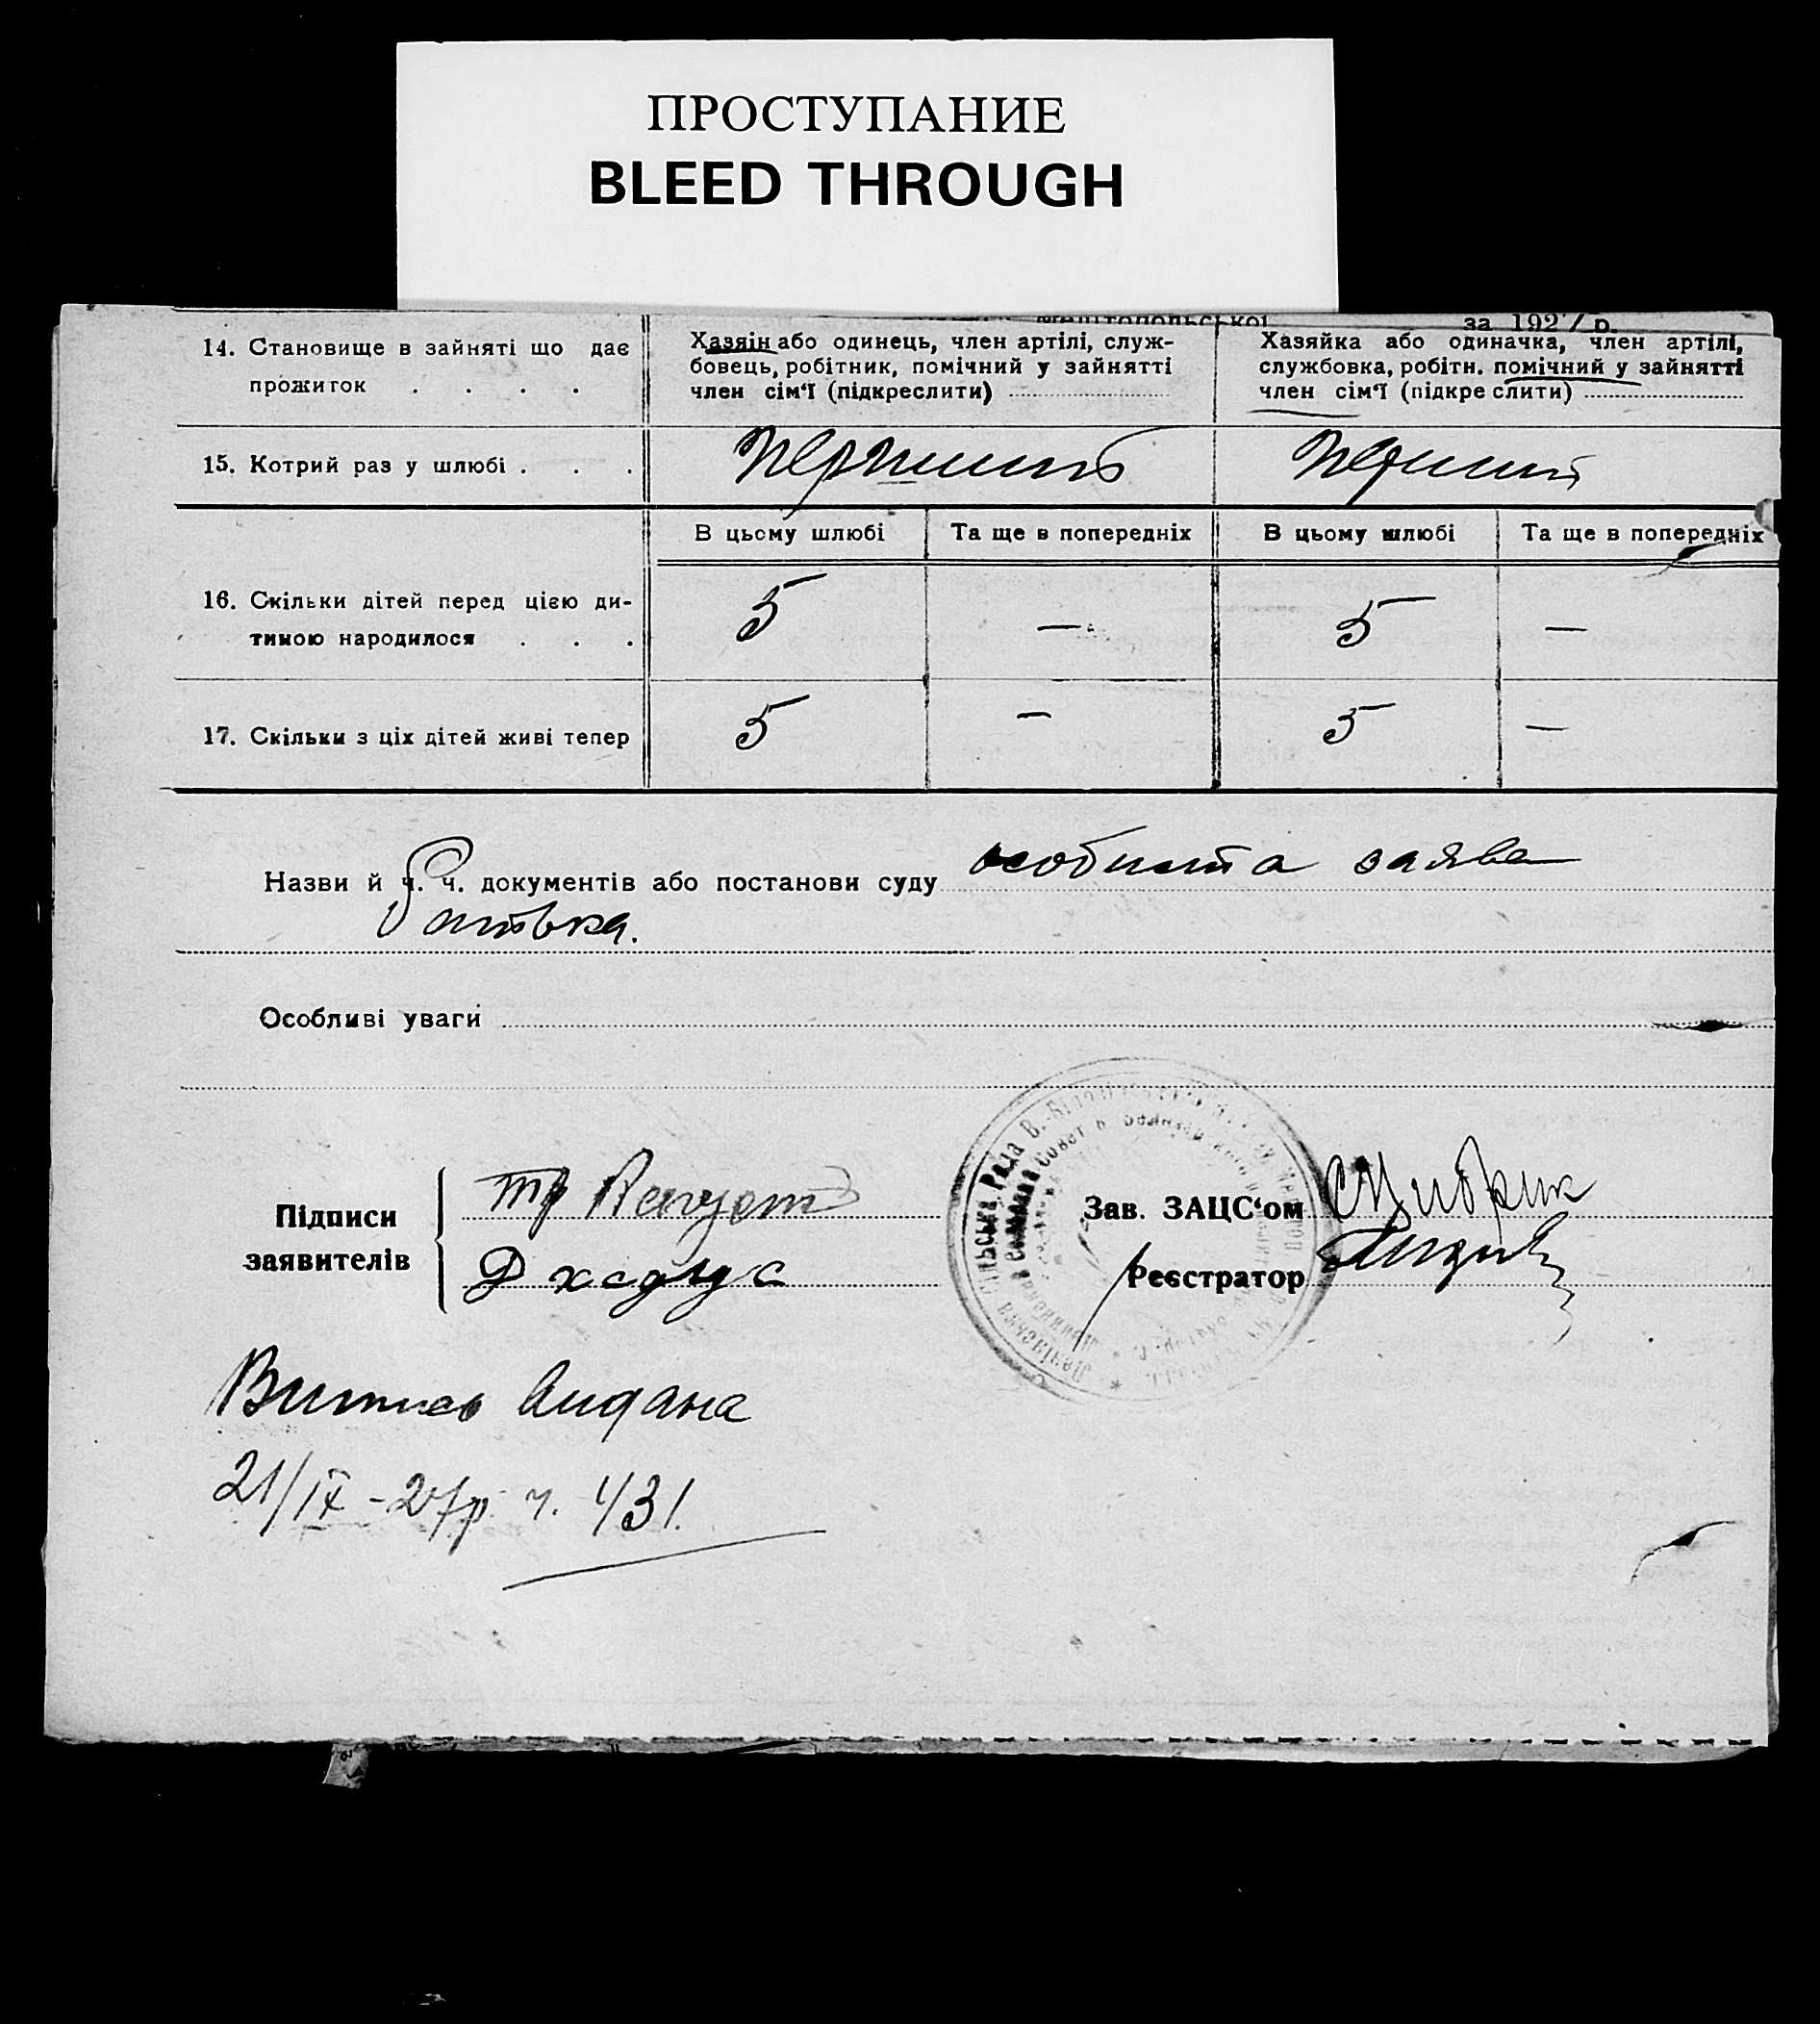 ПРОСТУПАНИЕ
BLEED THROUGH
за 1927 р.
14. Становище в зайняті що дає
прожиток . . . .
Хазяін або одинець, член артілі, служ-
бовець, робітник, помічний у зайнятті
член сім‘ї (підкреслити)
Хазяйка або одиначка, член артілі,
службовка, робітн. помічний у зайнятті
член сім‘ї (підкреслити)
15. Котрий раз у шлюбі . . .
В цьому шлюбі
Та ще в попередніх
В цьому шлюбі
Та ще в попередніх
16. Скільки дітей перед цією ди-
тиною народилося . . .
5 — 5 —
17. Скільки з ціх дітей живі тепер
5 — 5 —
Назви й ч. ч. документів або постанови суду особиста заява
батька.
Особливі уваги
Підписи
заявителів
Зав. ЗАЦС‘ом
Реєстратор
Сільська Рада
Випись видана
21/IX - 27р. ч. 431.